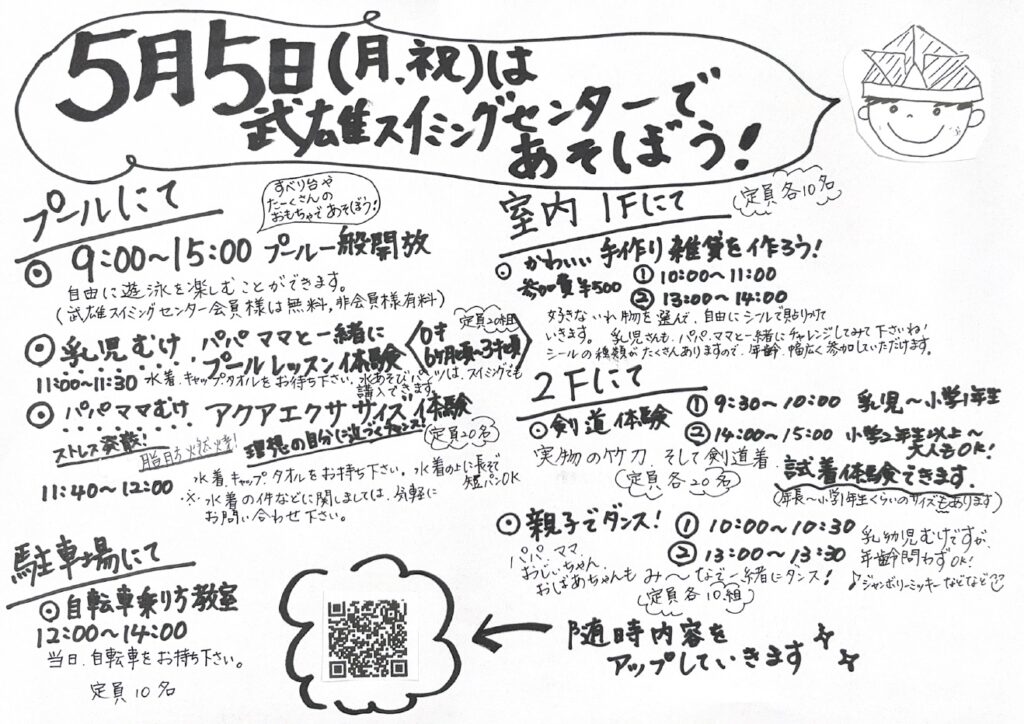 5月5日(月、祝)は
武雄スイミングセンターで
あそぼう!
プールにて
すべり台や
たーくさんの
おもちゃであそぼう!
◎ 9:00~15:00 プール一般開放
自由に遊泳を楽しむことができます。
(武雄スイミングセンター会員様は無料,非会員様有料)
◎乳児むけ パパママと一緒に
プールレッスン体験
0才
6ヶ月頃~3才頃
定員20組
11:00~11:30 水着、キャップ、タオルをお待ち下さい。水あそびパンツは、スイミングでも
購入できます。
◎パパママむけ アクアエクササイズ体験
ストレス発散!
脂肪燃焼!
理想の自分に近づくチャンス!
定員20名
11:40~12:00
水着、キャップ、タオルをお持ち下さい。水着の上に長そで
短パンOK
※水着の件などに関しましては、気軽に
お問い合わせ下さい。
駐車場にて
◎自転車乗り方教室
12:00~14:00
当日、自転車をお持ち下さい。
定員10名
室内1Fにて
定員各10名
◎ かわいい 手作り雑貨を作ろう!
参加費¥500
① 10:00~11:00
② 13:00~14:00
好きないれ物を選んで、自由にシールで貼りつけて
いきます。 乳児さんも、パパ、ママと一緒にチャレンジしてみて下さいね!
シールの種類がたくさんありますので、年齢、幅広く参加していただけます。
2Fにて
◎剣道体験
① 9:30~10:00 乳児~小学1年生
② 14:00~15:00 小学2年生以上~
大人もOK!
実物の竹刀、そして剣道着、
試着体験できます。
定員各20名
(年長~小学1年生くらいのサイズもあります)
◎親子でダンス!
① 10:00~10:30
② 13:00~13:30
乳幼児むけですが、
年齢問わずOK!
♪ジャンボリーミッキーなどなど??
パパ、ママ、
おじいちゃん、
おばあちゃんも み~んなで一緒にダンス!
定員各10組
← 随時内容を
アップしていきます